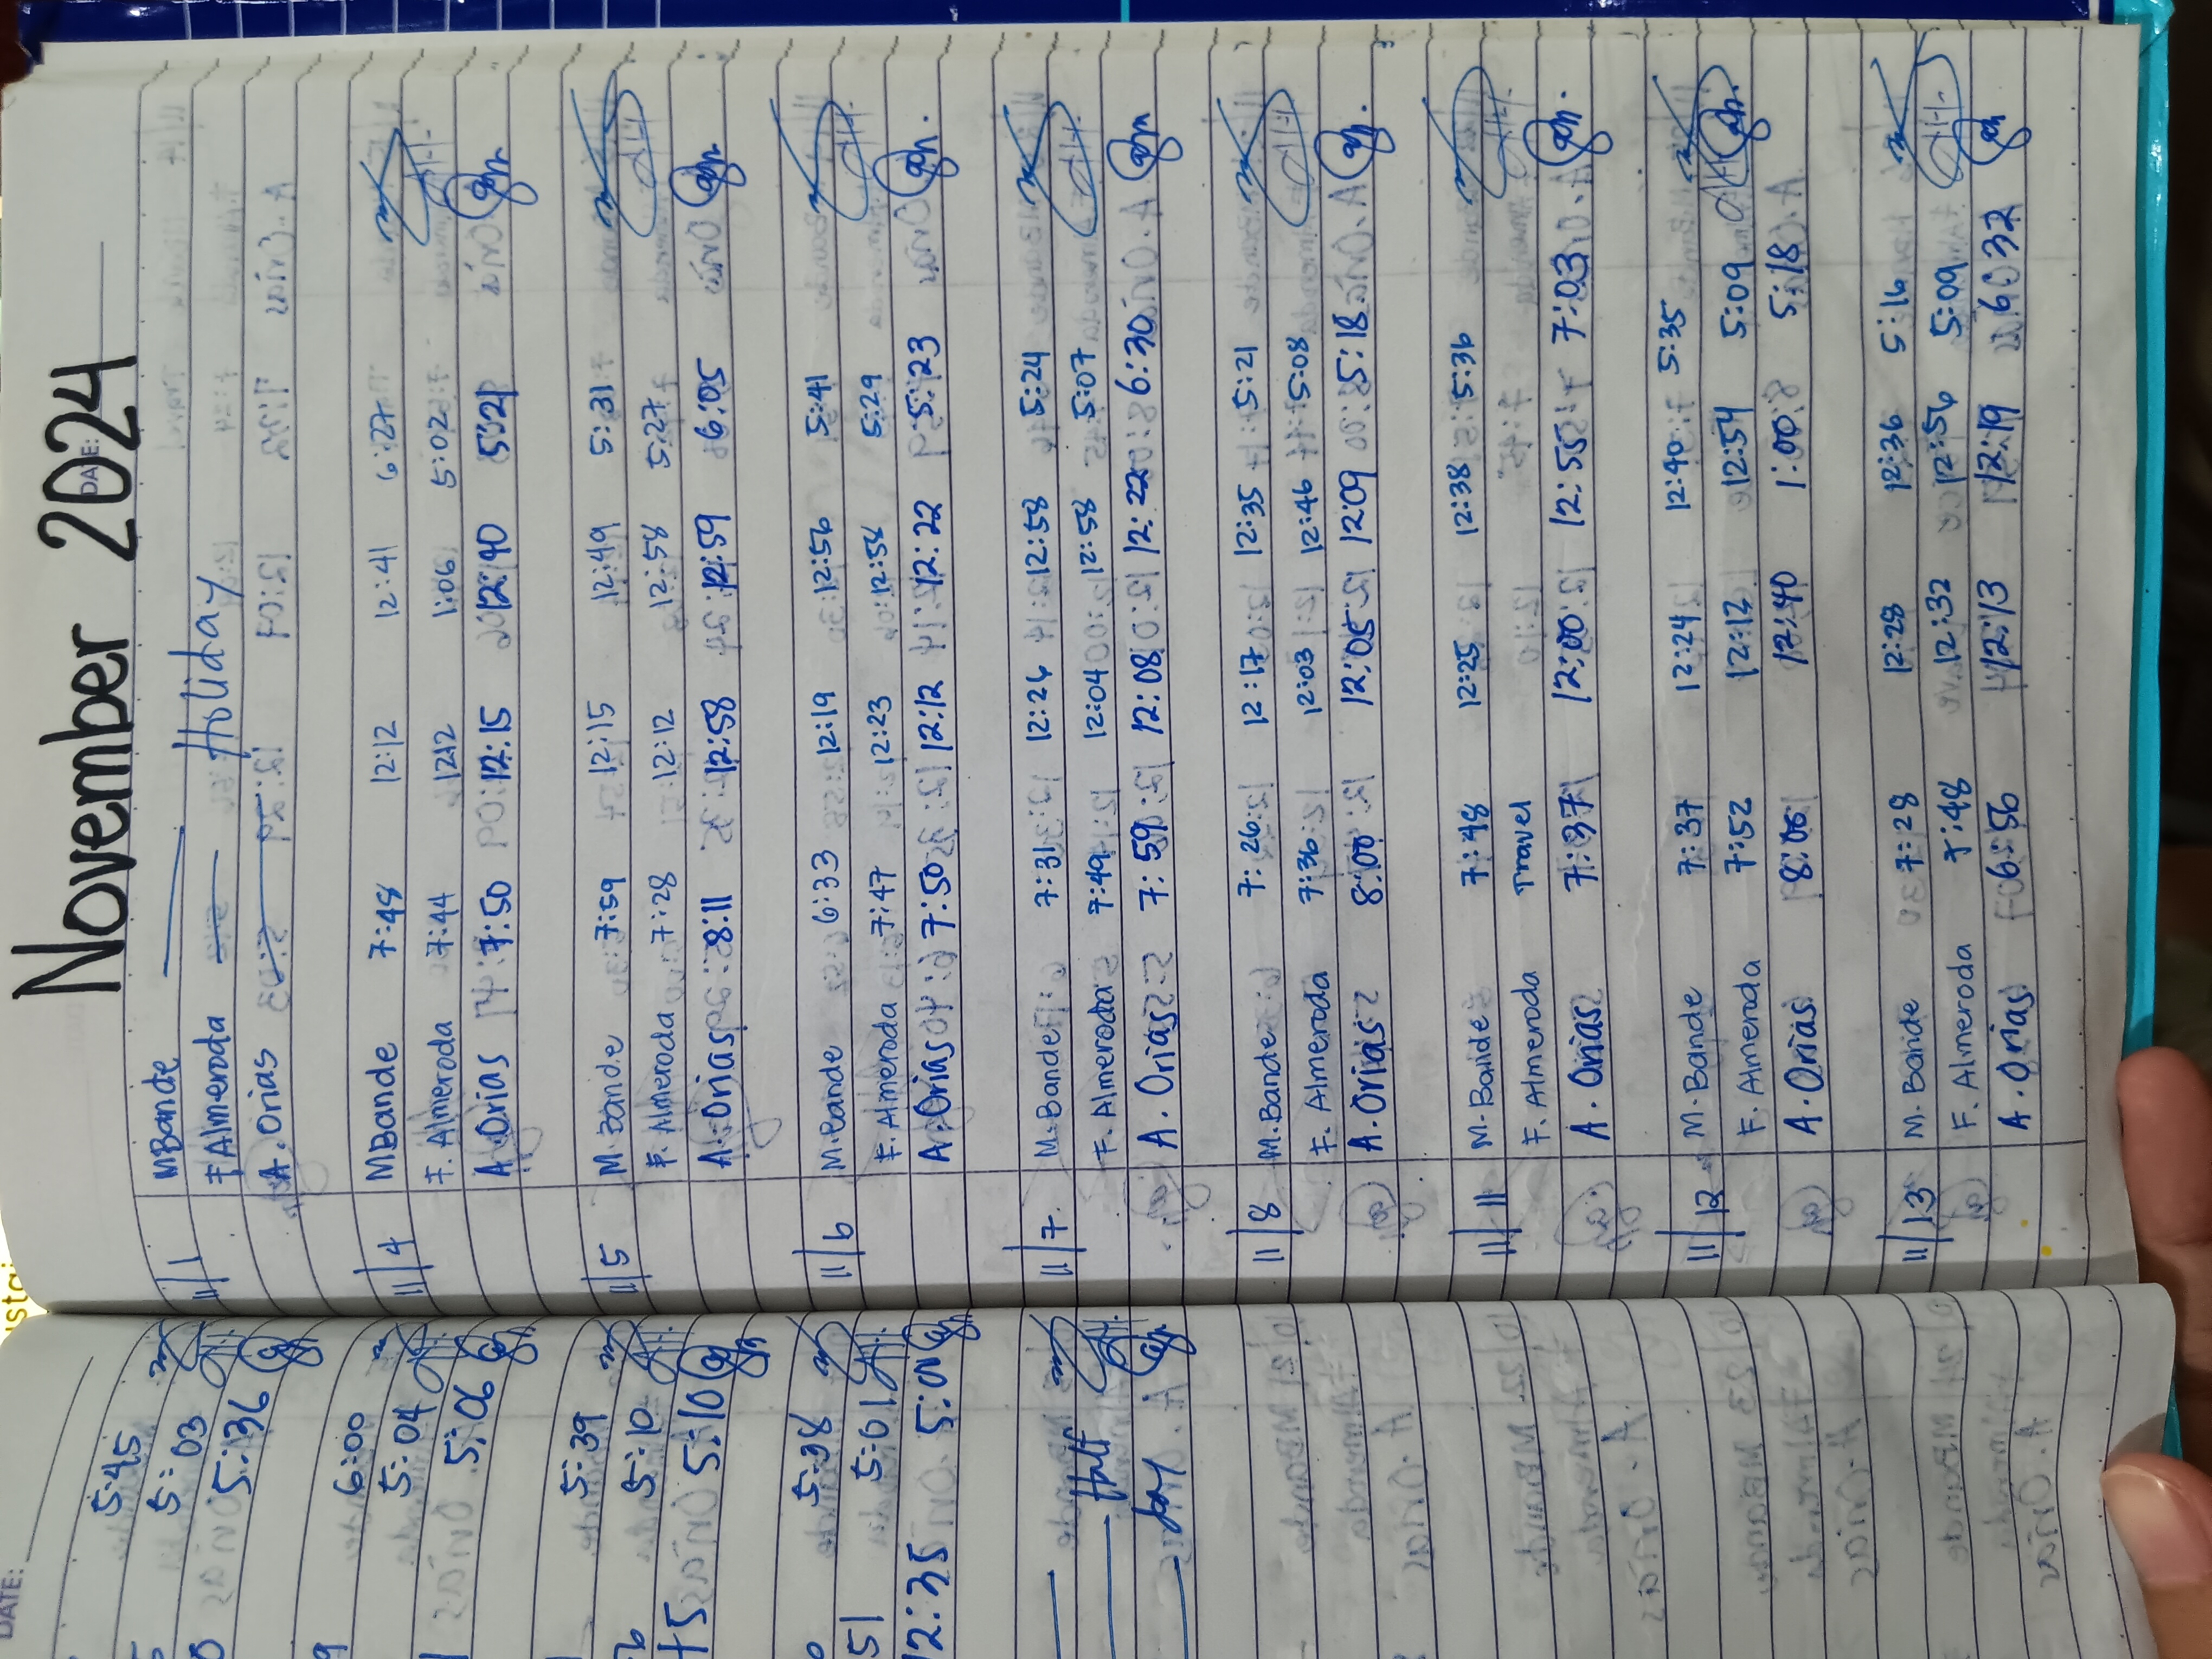 November 2024
DATE:
11/1 MBande
F Almeroda Holiday
A. Orias
11/4 MBande 7:48 12:12 12:41 6:27
F. Almeroda 7:44 1212 1:06 5:02
A. Orias 7:50 12:15 12:40 5:21
11/5 M Bande 7:59 12:15 12:49 5:31
F. Almeroda 7:28 12:12 12:58 5:27
A. Orias 8:11 12:58 12:59 6:05
11/6 M. Bande 6:33 12:19 12:56 5:41
F. Almeroda 7:47 12:23 12:58 5:29
A. Orias 7:50 12:12 12:22 5:23
11/7 M. Bande 7:31 12:26 12:58 5:24
F. Almeroda 7:49 12:04 12:58 5:07
A. Orias 7:59 12:08 12:22 6:30
11/8 M. Bande 7:26 12:17 12:35 5:21
F. Almeroda 7:36 12:03 12:46 5:08
A. Orias 8:00 12:05 1209 5:18
11/11 M. Bande 7:48 12:25 12:38 5:36
F. Almeroda Travel
A. Orias 7:37 12:00 12:55 7:03
11/12 M. Bande 7:37 12:24 12:40 5:35
F. Almeroda 7:52 12:12 12:54 5:09
A. Orias 8:06 12:40 1:00 5:18
11/13 M. Bande 7:28 12:28 12:36 5:16
F. Almeroda 7:48 12:32 12:56 5:09
A. Orias 6:56 12:13 12:19 6032
DATE:
5:45
5:03
5:36
6:00
5:04
5:06
5:39
5:10
5:10
5:38
51 5:01
12:35 5:01
Half
day